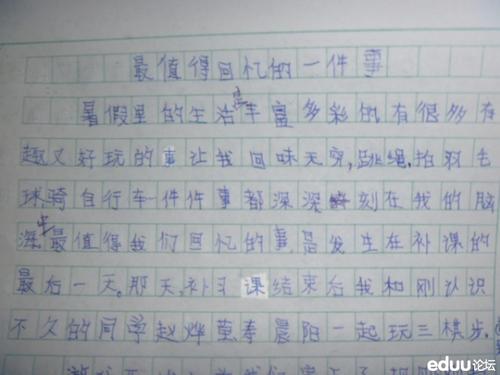 最值得回忆的一件事
暑假里的生活是丰富多彩的,有很多有
趣又好玩的事让我回味无穷,跳绳,拍羽毛
球骑自行车一件件事都深深刻在我的脑
海中最值得我们回忆的事是发生在补课的
最后一天。那天,补习课结束后我和刚认识
不久的同学赵烨萤寿晨阳一起玩三棋步,
eduu论坛